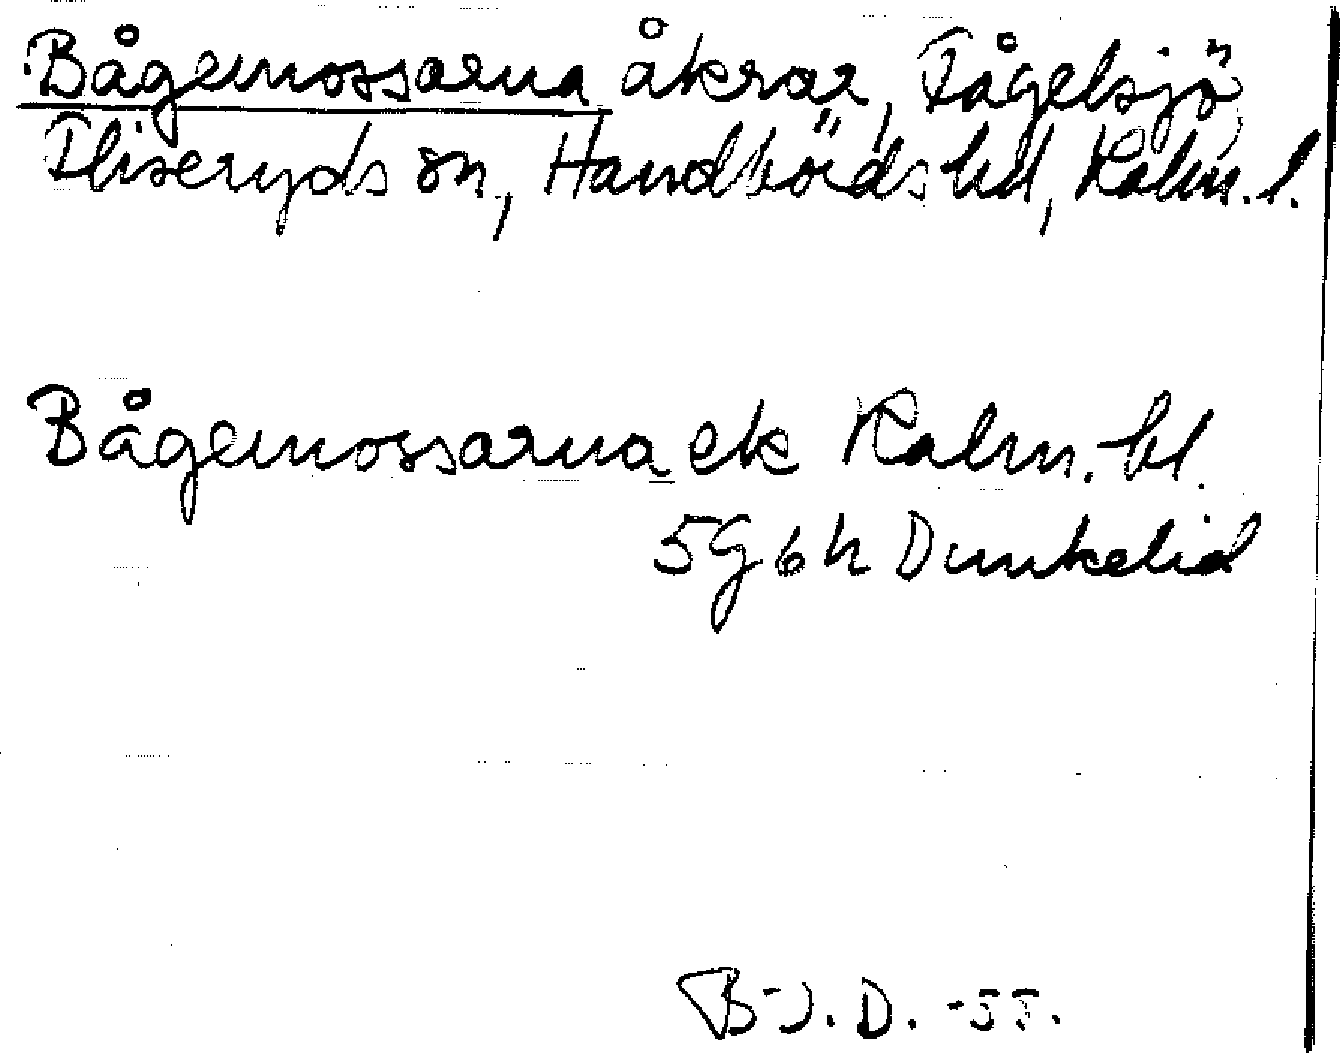 Bågemossarna åkrar, Fågelsjö
Fliseryds sn, Handbörds hd, Kalm. l.
Bågemossarna ek Kalm. bl.
5G6h Dunkelid
B-J. D. -55.